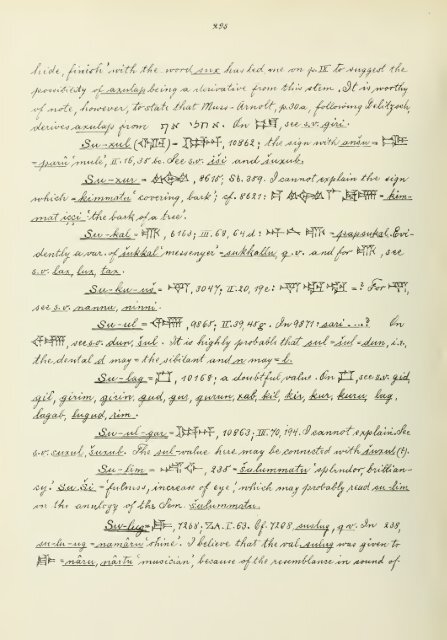 295
hide, finish' with the word sux has led me on p. IX to suggest the
possibility of axulap being a derivative from this stem. It is worthy
of note, however, to state that Muss-Arnolt, p.30a, following Delitzsch,
derives axulap from אחלי אן. On see s.v. giri.
Su-xul = 10862; = the sign with anšu =
= parû 'mule', II. 16, 35 bc. See s.v. isi and suxub.
Su-xur = 8615; Sb. 359. I cannot explain the sign
which = kimmatu 'covering, bark'; cf. 8621: = kim-
mat içci 'the bark of a tree'.
Su-kal = 6163; III. 68, 64d: = papsukal. Evi-
dently a var. of šukkal 'messenger' = sukkallu, q.v. and for see
s.v. lax, lux, tax.
Su-ku-uš = 3047; II. 20, 19c: = ? For
see s.v. nannu, ninni.
Su-ul = 9865; II. 39, 45g. In 9871: sari ....? On
see s.v. dun, šul. It is highly probable that sul = šul = dun, i.e.,
the dental d may = the sibilant and n may = l.
Su-lag = 10168; a doubtful value. On see s.v. gid,
gil, girim, girin, gud, gus, gurun, xab, kil, kir, kur, kuru, lag,
lagab, lugud, rim.
Su-ul-gar = 10863; III. 70, 194. I cannot explain. See
s.v. suxul, šuxub. The sul-value here may be connected with šuxul (?).
Su-lim = 238 = šalummatu 'splendor, brillian-
cy'. Su.ši = 'fulness, increase of eye', which may probably read su-lim
on the analogy of the Sem. šalummatu.
Su-lug = 7268. Z.A. I. 63. Cf. 7208, suslug, q.v. In 238,
su-lu-ug = namāru 'shine'. I believe that the val. sulug was given to
= nâru, nârtu 'musician', because of the resemblance in sound of